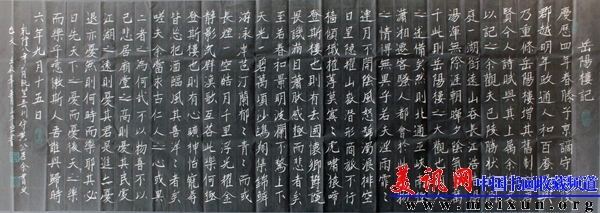 岳陽樓記
慶歷四年春滕子京謫守巴陵
郡越明年政通人和百廢具興
乃重修岳陽樓增其舊制刻唐
賢今人詩賦於其上屬余作文
以記之余觀夫巴陵勝狀在洞
庭一湖銜遠山吞長江浩浩湯
湯渾無際涯朝暉夕陰氣象萬
千此則岳陽樓之大觀也前人
之述備矣然則北通巫峽南極
瀟湘遷客騷人都會於此覽物
之情得無異乎若夫霪雨霏霏
連月不開陰風怒號濁浪排空
日星隱耀山岳潛形商旅不行
檣傾楫摧薄暮冥冥虎嘯猿啼
登斯樓也則有去國懷鄉憂讒
畏譏滿目蕭然感極而悲者矣
至若春和景明波瀾不驚上下
天光一碧萬頃沙鷗翔集錦鱗
游泳岸芷汀蘭郁郁青青而或
長煙一空皓月千里浮光躍金
靜影沉璧漁歌互答此樂何極
登斯樓也則有心曠神怡寵辱
皆忘把酒臨風其喜洋洋者矣
嗟夫余嘗求古仁人之心或異
二者之為何哉不以物喜不以
己悲居廟堂之高則憂其民處
江湖之遠則憂其君是進亦憂
退亦憂然則何時而樂耶其必
曰先天下之憂而憂後天下之樂
而樂乎噫微斯人吾誰與歸時
六年九月十五日
美讯网
中国书画收藏频道
meixun.org